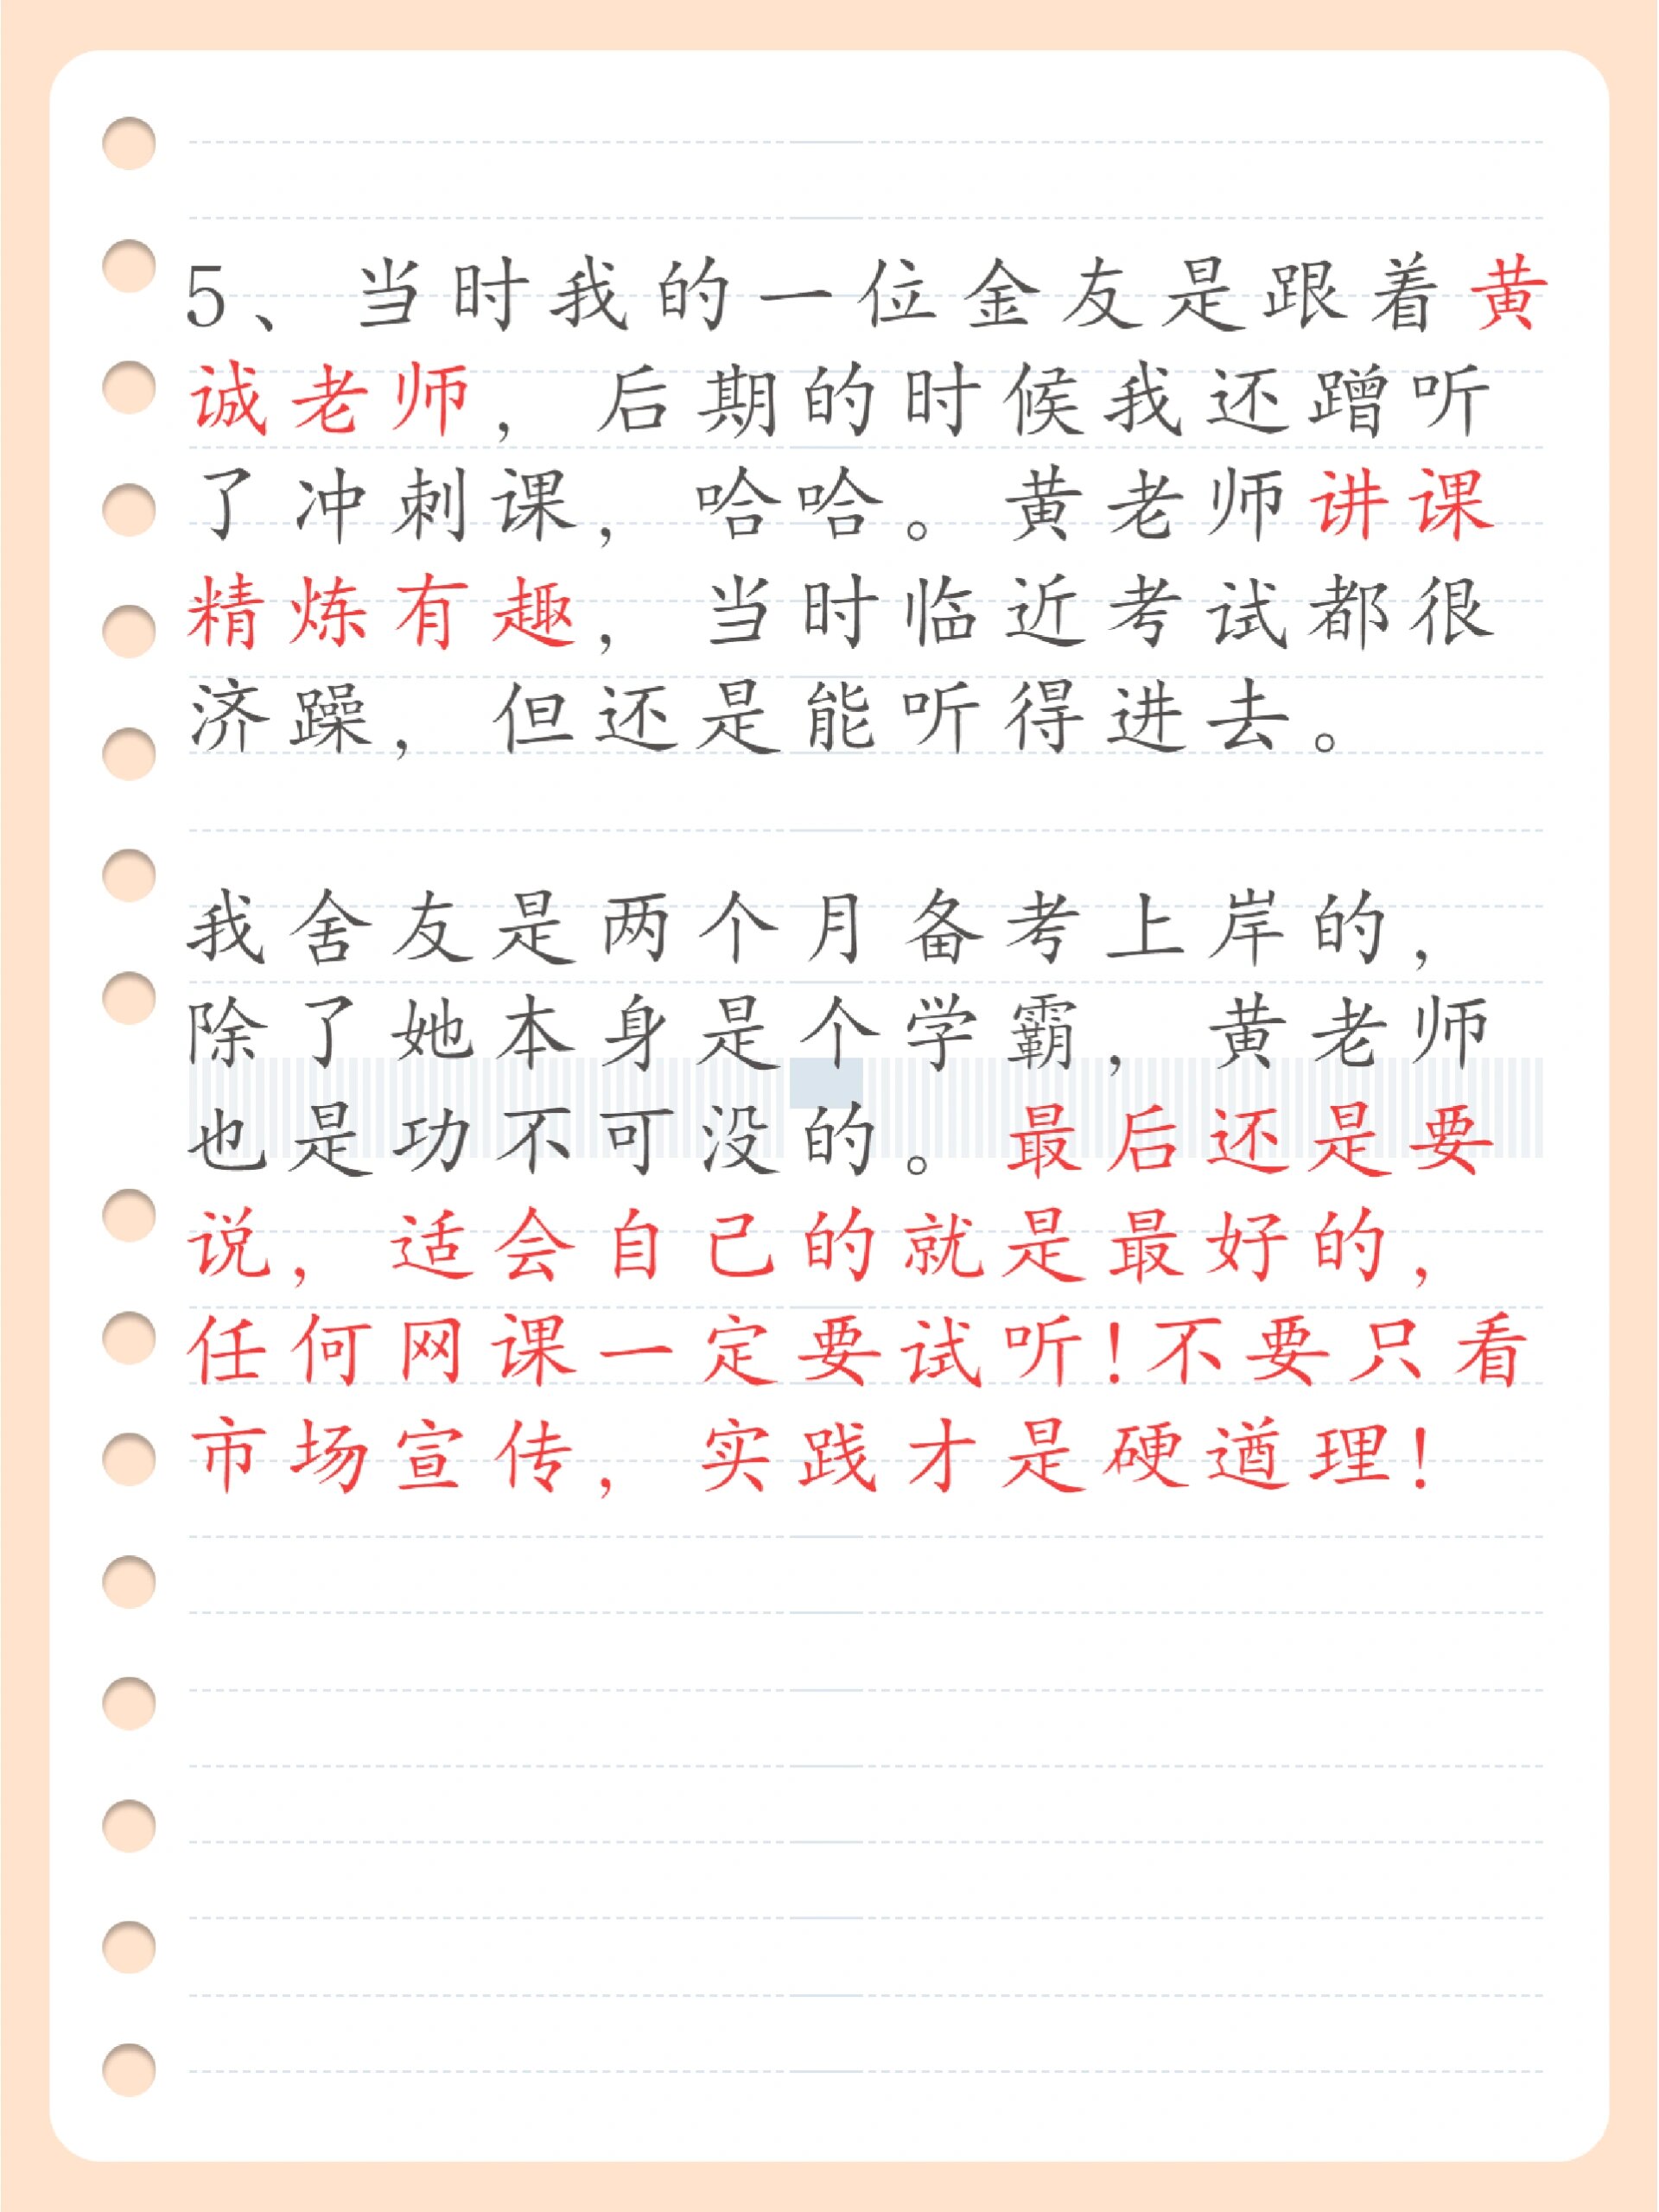 5、当时我的一位金友是跟着黄
诚老师，后期的时候我还蹭听
了冲刺课，哈哈。黄老师讲课
精炼有趣，当时临近考试都很
济躁，但还是能听得进去。
我舍友是两个月备考上岸的，
除了她本身是个学霸，黄老师
也是功不可没的。最后还是要
说，适会自己的就是最好的，
任何网课一定要试听！不要只看
市场宣传，实践才是硬道理！